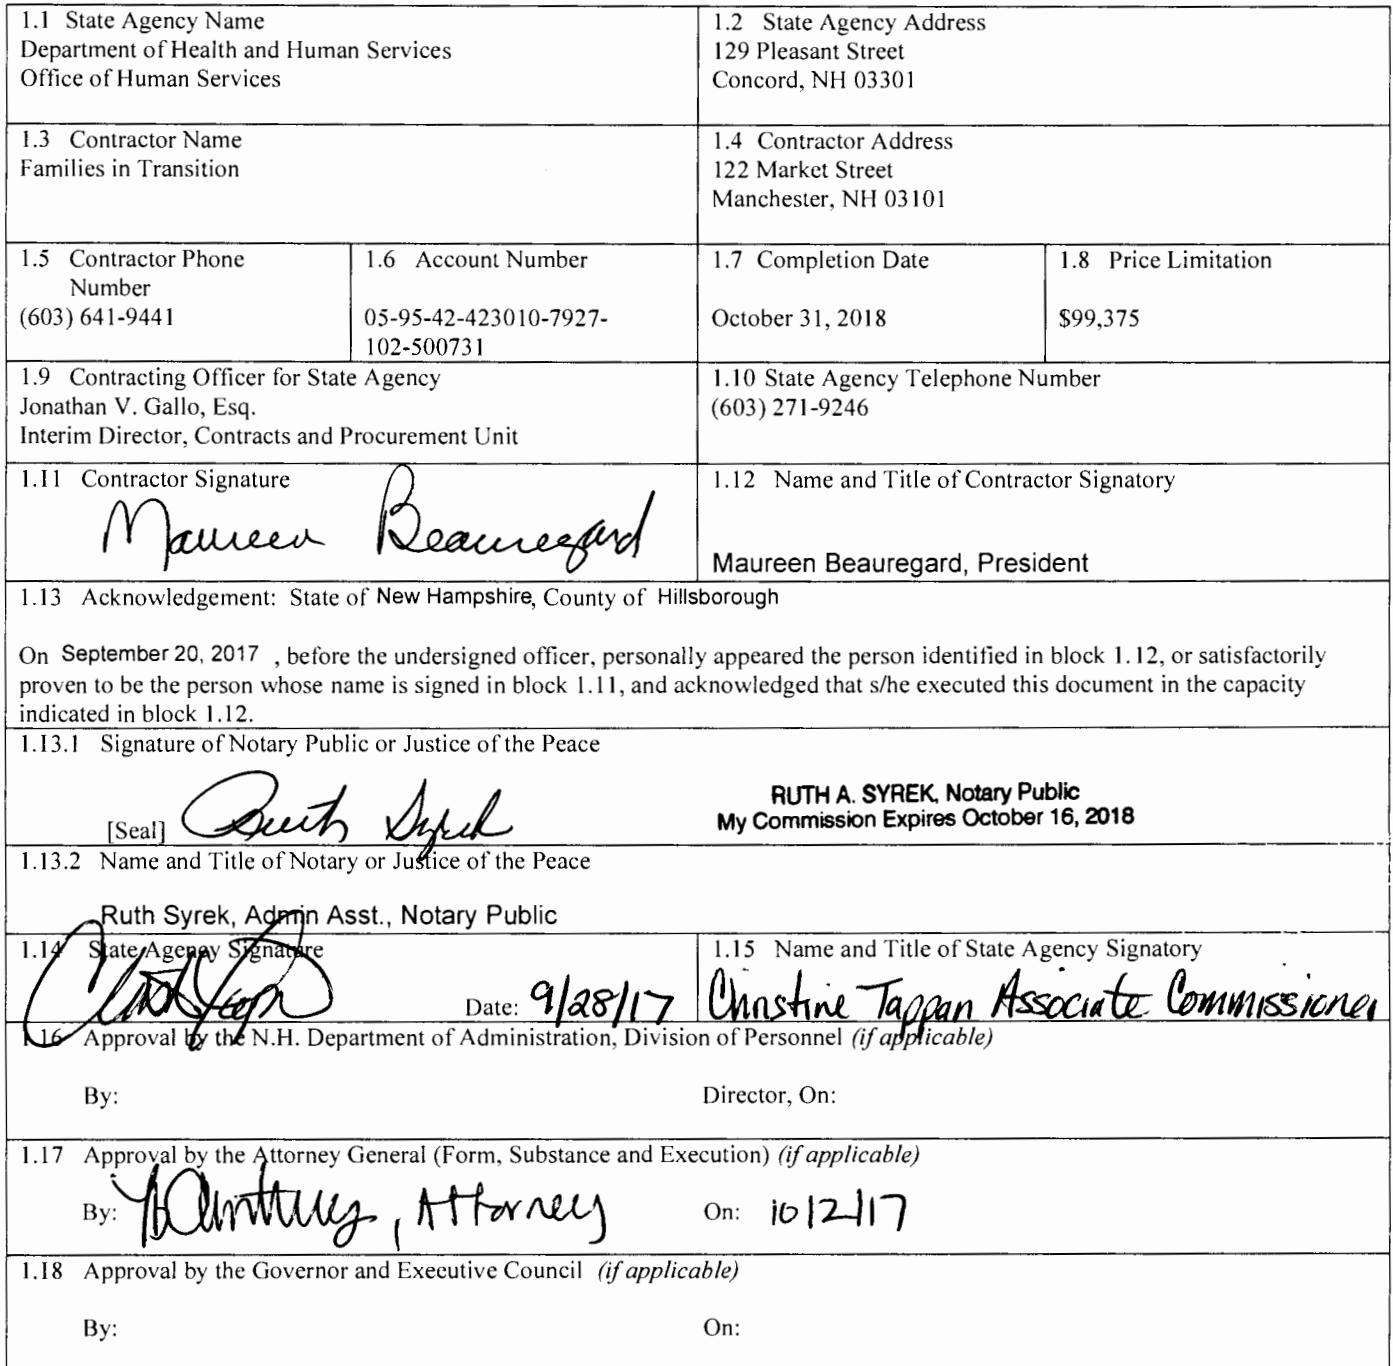 1.1 State Agency Name
Department of Health and Human Services
Office of Human Services
1.2 State Agency Address
129 Pleasant Street
Concord, NH 03301
1.3 Contractor Name
Families in Transition
1.4 Contractor Address
122 Market Street
Manchester, NH 03101
1.5 Contractor Phone
Number
(603) 641-9441
1.6 Account Number
05-95-42-423010-7927-
102-500731
1.7 Completion Date
October 31, 2018
1.8 Price Limitation
$99,375
1.9 Contracting Officer for State Agency
Jonathan V. Gallo, Esq.
Interim Director, Contracts and Procurement Unit
1.10 State Agency Telephone Number
(603) 271-9246
1.11 Contractor Signature
Maureen Beauregard
1.12 Name and Title of Contractor Signatory
Maureen Beauregard, President
1.13 Acknowledgement: State of New Hampshire, County of Hillsborough
On September 20, 2017 , before the undersigned officer, personally appeared the person identified in block 1.12, or satisfactorily
proven to be the person whose name is signed in block 1.11, and acknowledged that s/he executed this document in the capacity
indicated in block 1.12.
1.13.1 Signature of Notary Public or Justice of the Peace
[Seal] Ruth Syrek
RUTH A. SYREK, Notary Public
My Commission Expires October 16, 2018
1.13.2 Name and Title of Notary or Justice of the Peace
Ruth Syrek, Admin Asst., Notary Public
1.14 State Agency Signature
Date: 9/28/17
1.15 Name and Title of State Agency Signatory
Christine Tappan Associate Commissioner
1.16 Approval by the N.H. Department of Administration, Division of Personnel (if applicable)
By:
Director, On:
1.17 Approval by the Attorney General (Form, Substance and Execution) (if applicable)
By: , Attorney
On: 10/2/17
1.18 Approval by the Governor and Executive Council (if applicable)
By:
On: